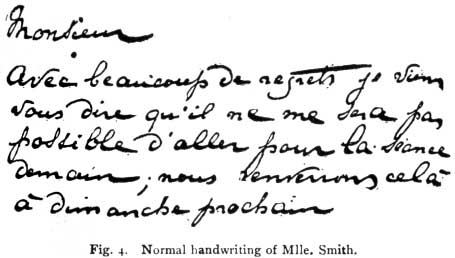 Monsieur
Avec beaucoup de regrets je viens
vous dire qu'il ne me sera pas
possible d'aller pour la séance
demain; nous renverrons celà
à dimanche prochain
Fig. 4. Normal handwriting of Mlle. Smith.